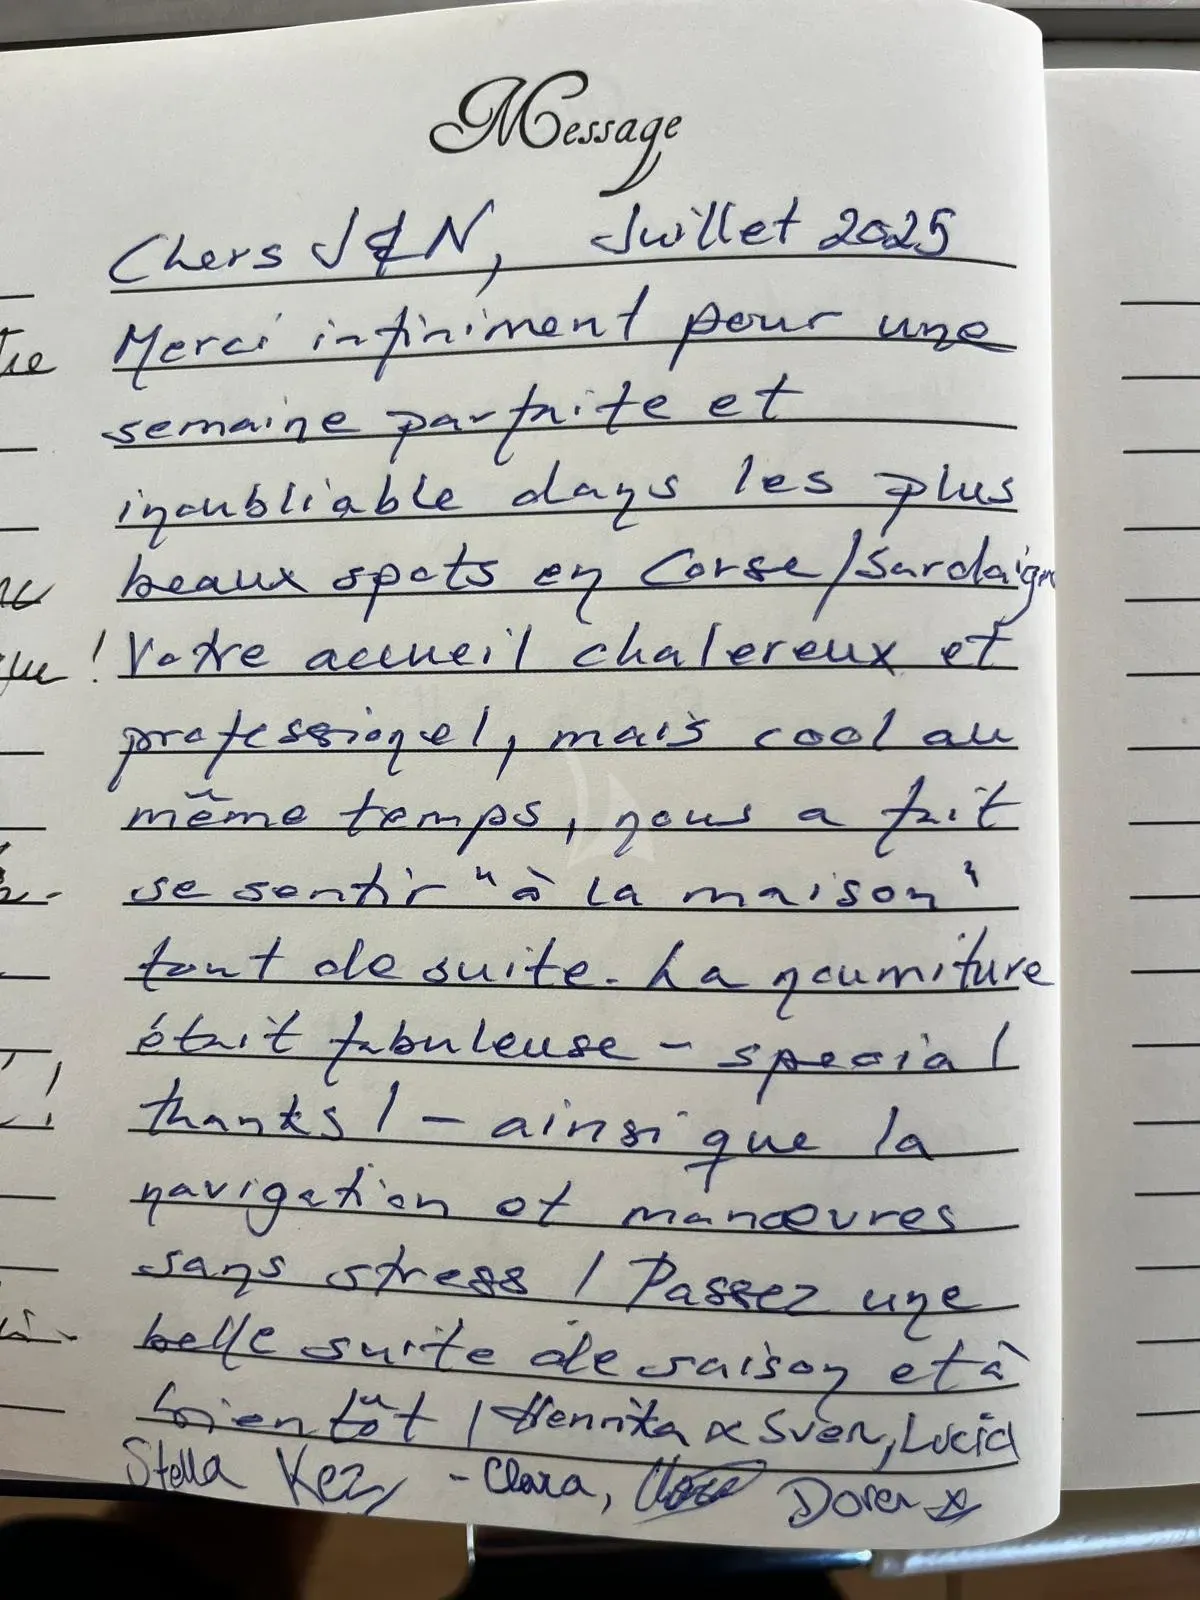 Message
Chers J & N, Juillet 2025
Merci infiniment pour une
semaine parfaite et
inoubliable dans les plus
beaux spots en Corse/Sardaigne
! Votre accueil chalereux et
professionel, mais cool au
même temps, nous a fait
se sentir "à la maison"
tout de suite. La nourriture
était fabuleuse - special
thanks! - ainsi que la
navigation et manœuvres
sans stress! Passez une
belle suite de saison et à
bientôt! Henrika & Sven, Lucia
Stella Kez, - Clara, Doren